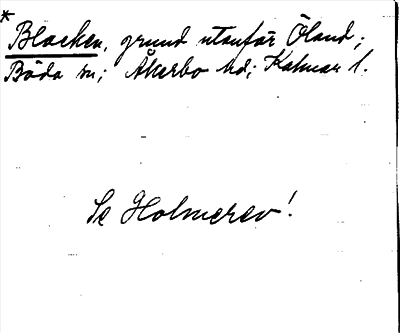 *
Blacken, grund utanför Öland;
Böda sn; Åkerbo hd; Kalmar l.
Se Holmerev!